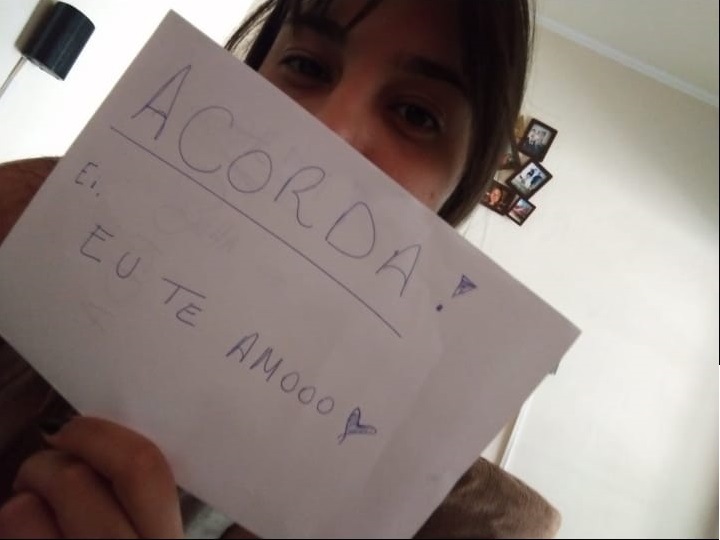 ACORDA!
Ei.
EU TE AMOOO